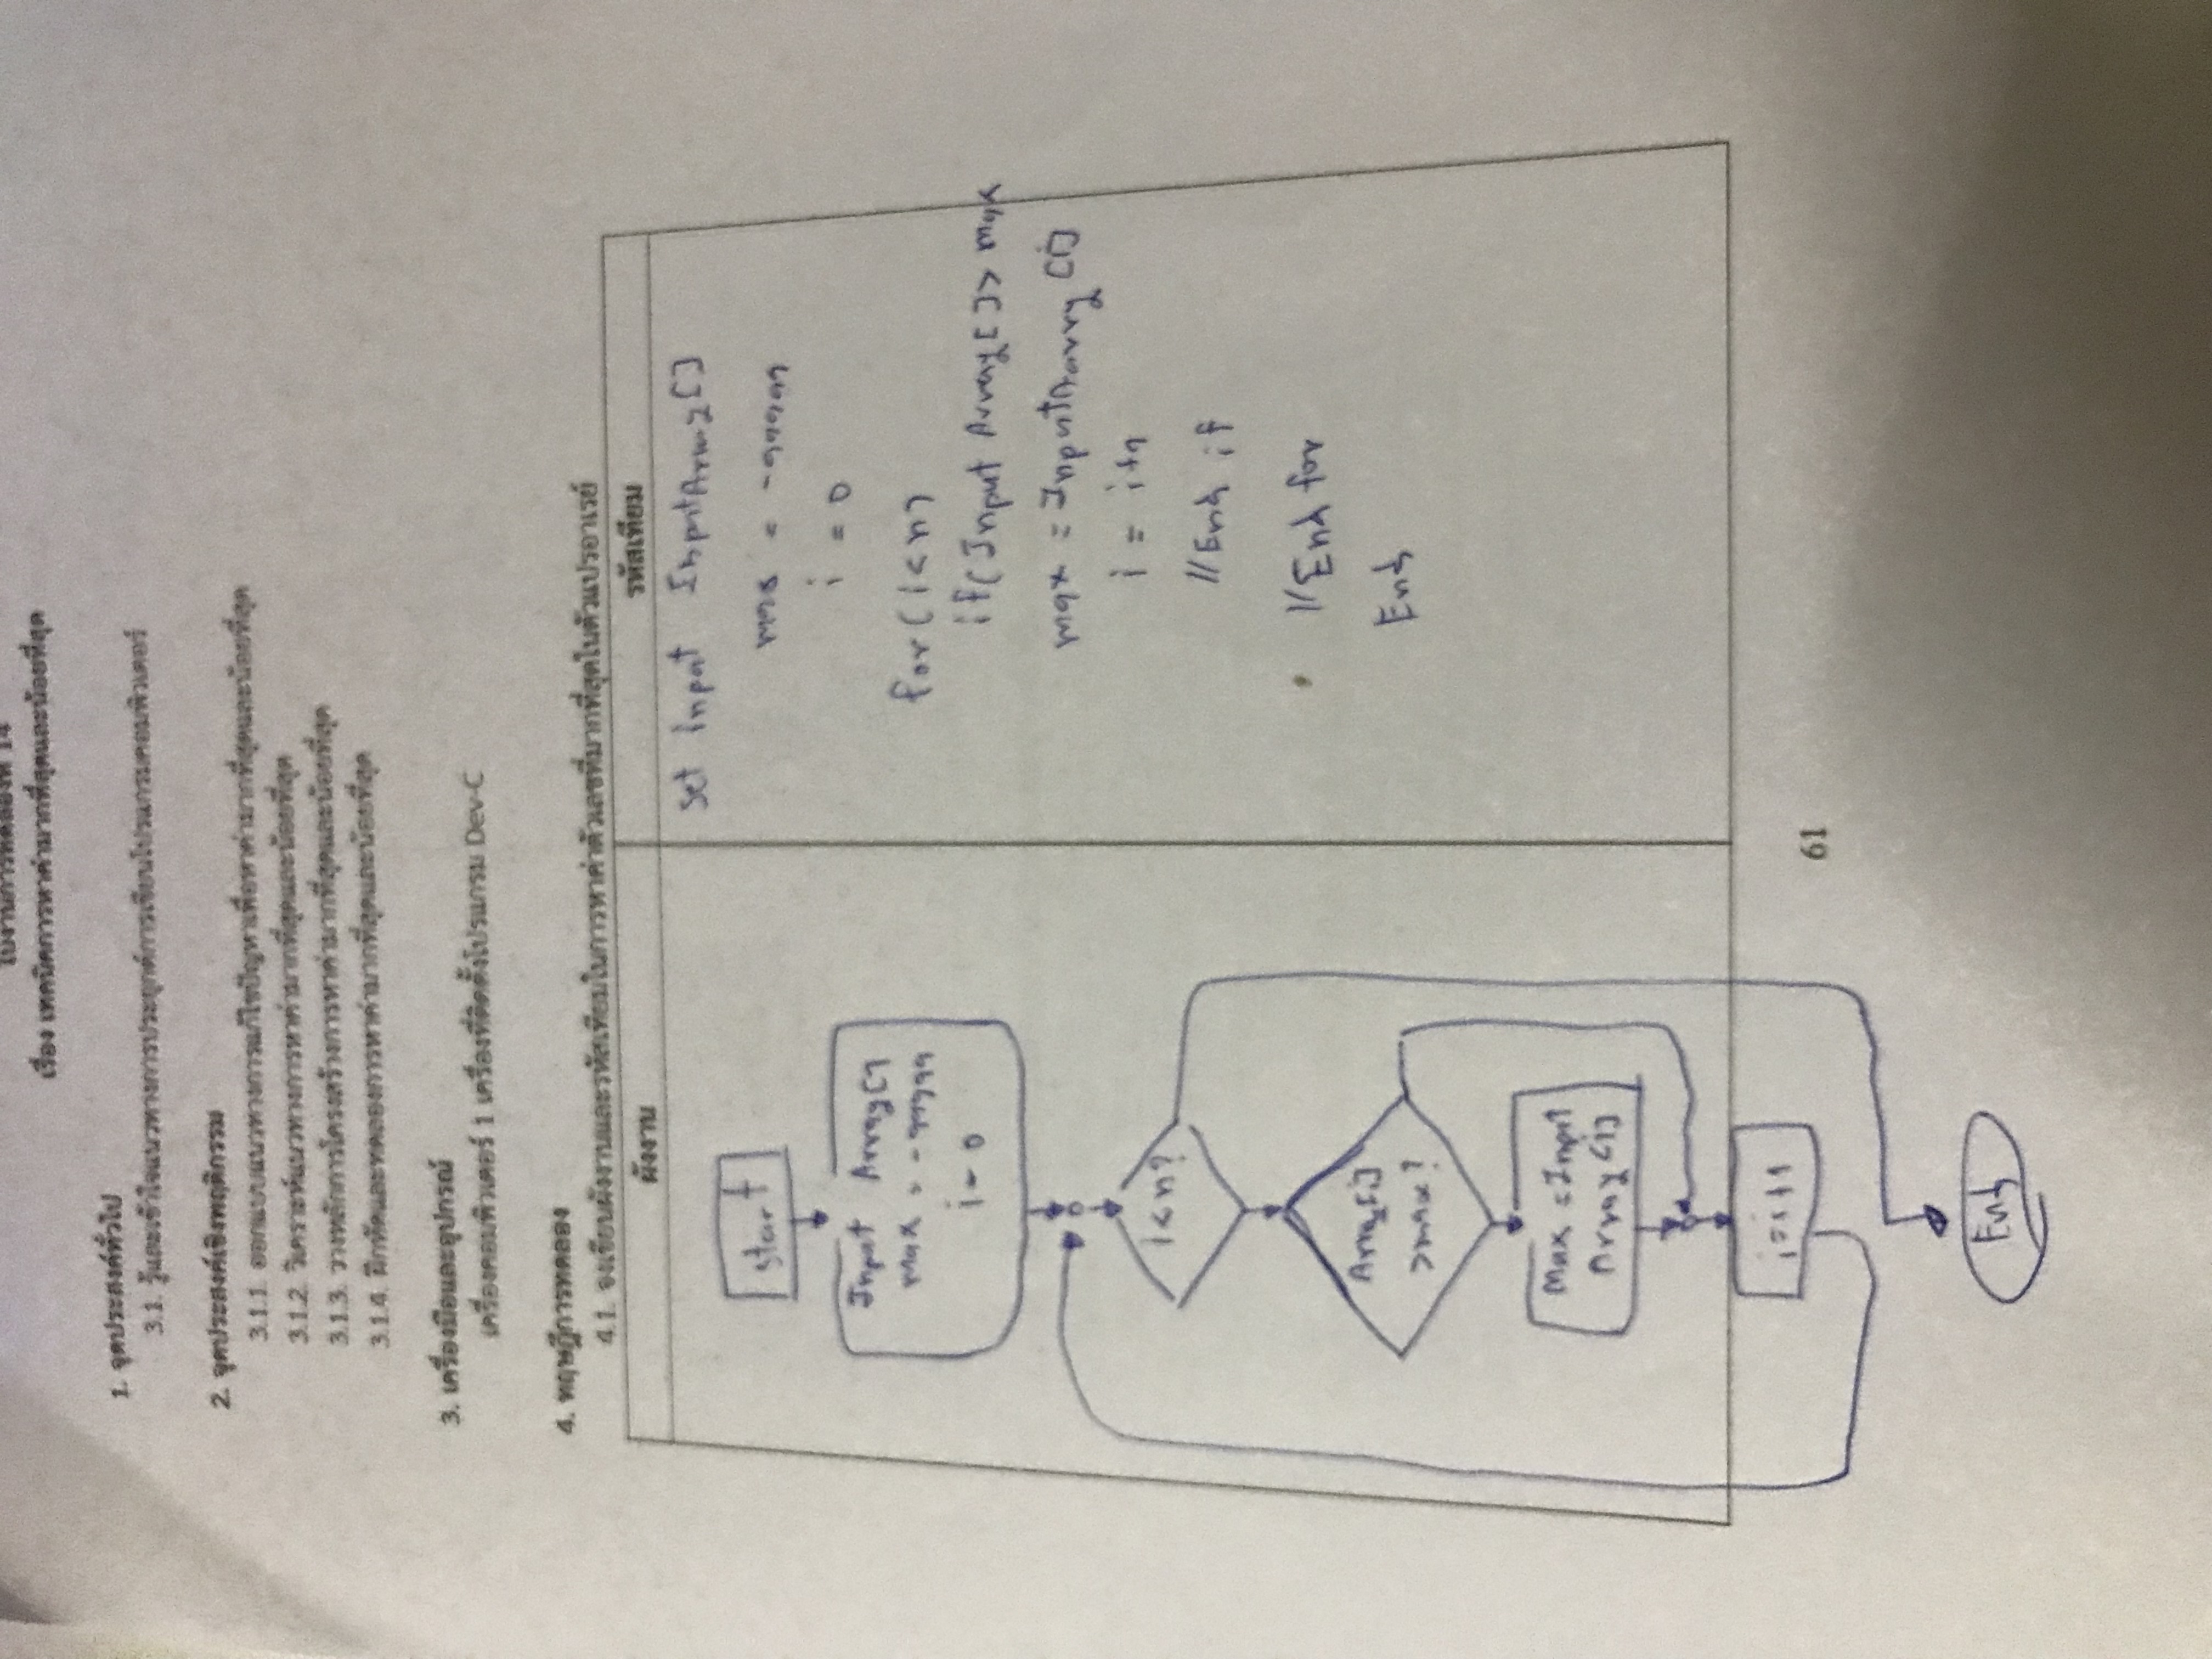 ใบงานการทดลองที่ 14
เรื่อง เทคนิคการหาค่ามากที่สุดและน้อยที่สุด
1. จุดประสงค์ทั่วไป
3.1. รู้และเข้าใจแนวทางการประยุกต์การเขียนโปรแกรมคอมพิวเตอร์
2. จุดประสงค์เชิงพฤติกรรม
3.1.1. ออกแบบแนวทางการแก้ไขปัญหาเพื่อหาค่ามากที่สุดและน้อยที่สุด
3.1.2. วิเคราะห์แนวทางการหาค่ามากที่สุดและน้อยที่สุด
3.1.3. วางหลักการโครงสร้างการหาค่ามากที่สุดและน้อยที่สุด
3.1.4. ฝึกหัดและทดลองการหาค่ามากที่สุดและน้อยที่สุด
3. เครื่องมือและอุปกรณ์
เครื่องคอมพิวเตอร์ 1 เครื่องที่ติดตั้งโปรแกรม Dev-C
4. ทฤษฎีการทดลอง
4.1. จงเขียนผังงานและรหัสเทียมในการหาค่าตัวเลขที่มากที่สุดในตัวแปรอาเรย์
ผังงาน
start
Input Array[]
max = -99999
i = 0
i < n?
Array[i]
> max?
Max = Input
Array [i]
i = i+1
End
รหัสเทียม
Set input InputArray[]
max = -99999
i = 0
for (i < n)
if( Input Array[] > max
max = InputAarry [i]
i = i+1
//End if
//End for
End
61